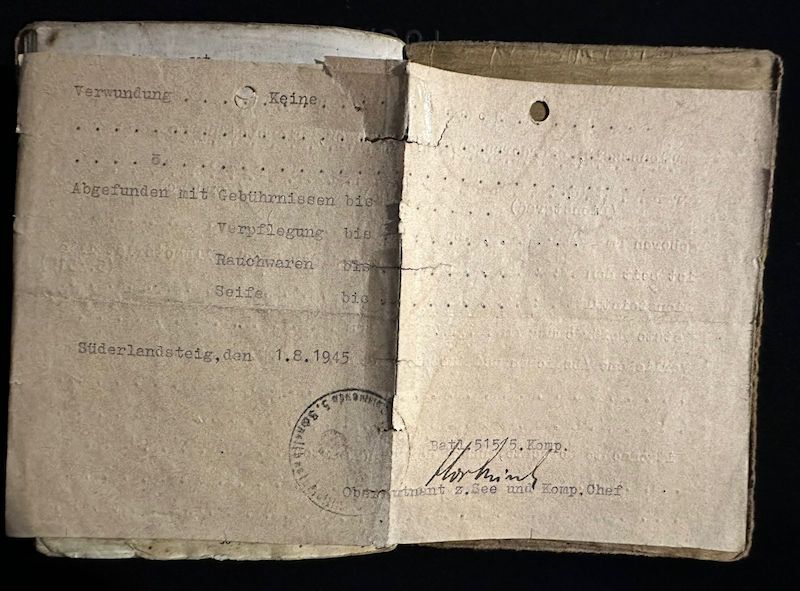 Verwundung . . . . . Keine. . . . .
. . . . . . . . . . . . . . . . . . . .
. . . . ö. . . . . . . . . . . . . . . .
Abgefunden mit Gebührnissen bis . . . . . . . .
Verpflegung bis . . . . . . . .
Rauchwaren bis . . . . . . . .
Seife bis . . . . . . . .
Süderlandsteig,den 1.8.1945
Batl.515/5.Komp.
Oberleutnant z.See und Komp.Chef